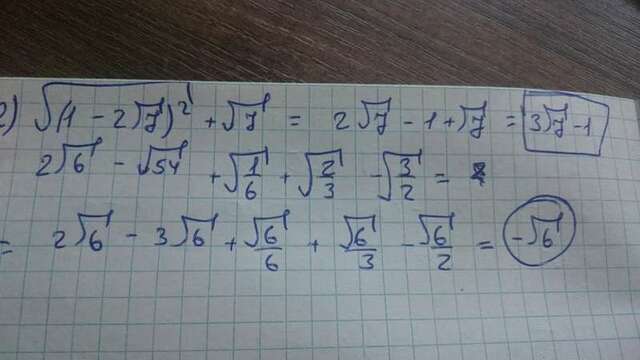 2) √(1 - 2√7)² + √7 = 2√7 - 1 + √7 = 3√7 - 1
2√6 - √54 + √1/6 + √2/3 - √3/2 =
= 2√6 - 3√6 + √6/6 + √6/3 - √6/2 = -√6